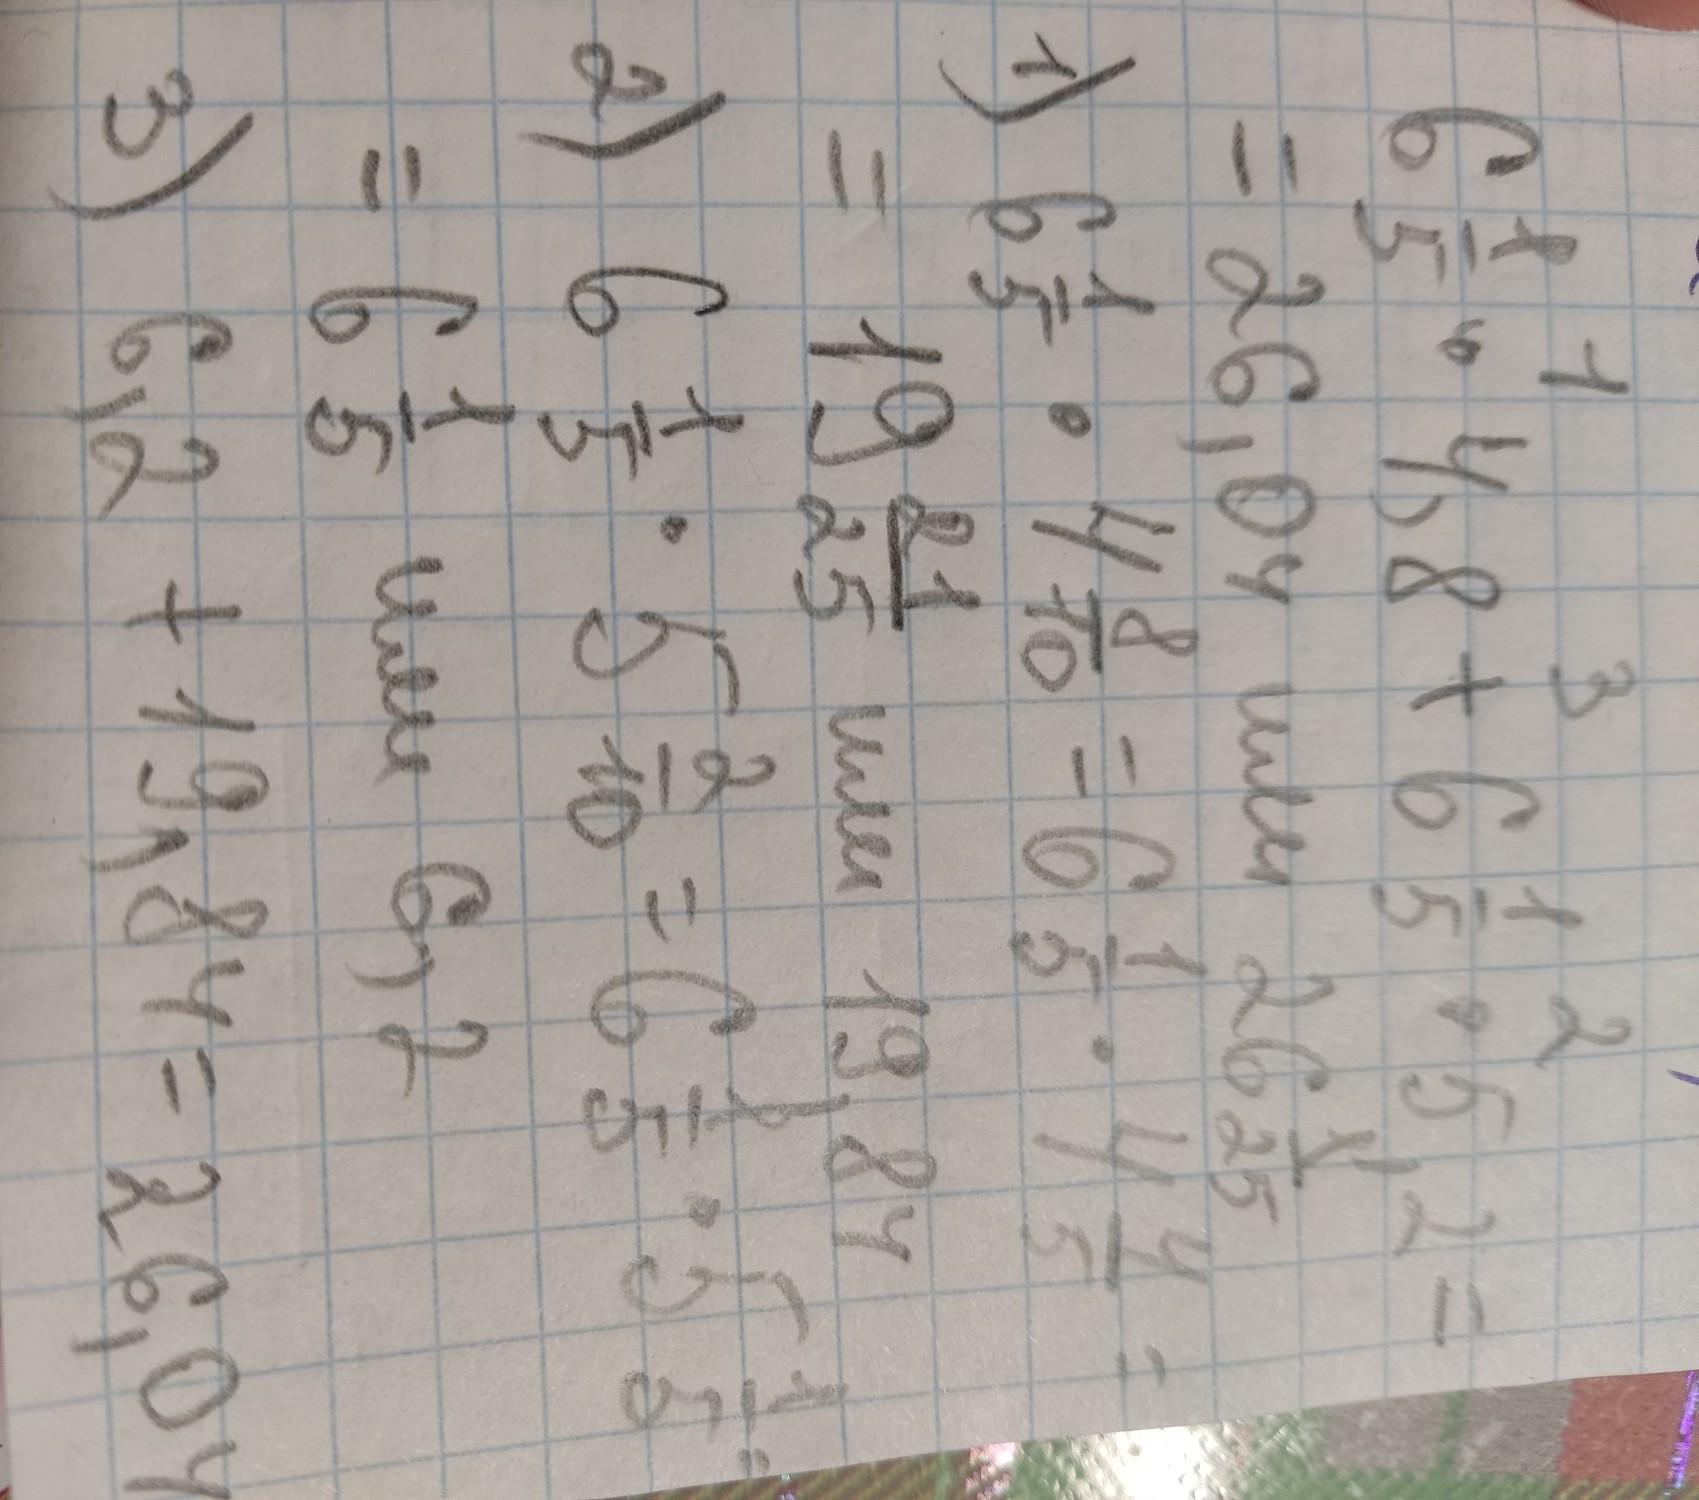 1 3 2
6 1/5 · 4,8 + 6 1/5 · 5,2 =
= 26,04 или 26 1/25
1) 6 1/5 · 4 8/10 = 6 1/5 · 4 4/5 =
= 19 21/25 или 19,84
2) 6 1/5 · 5 2/10 = 6 1/5 · 5 1/5 =
= 6 1/5 или 6,2
3) 6,2 + 19,84 = 26,04